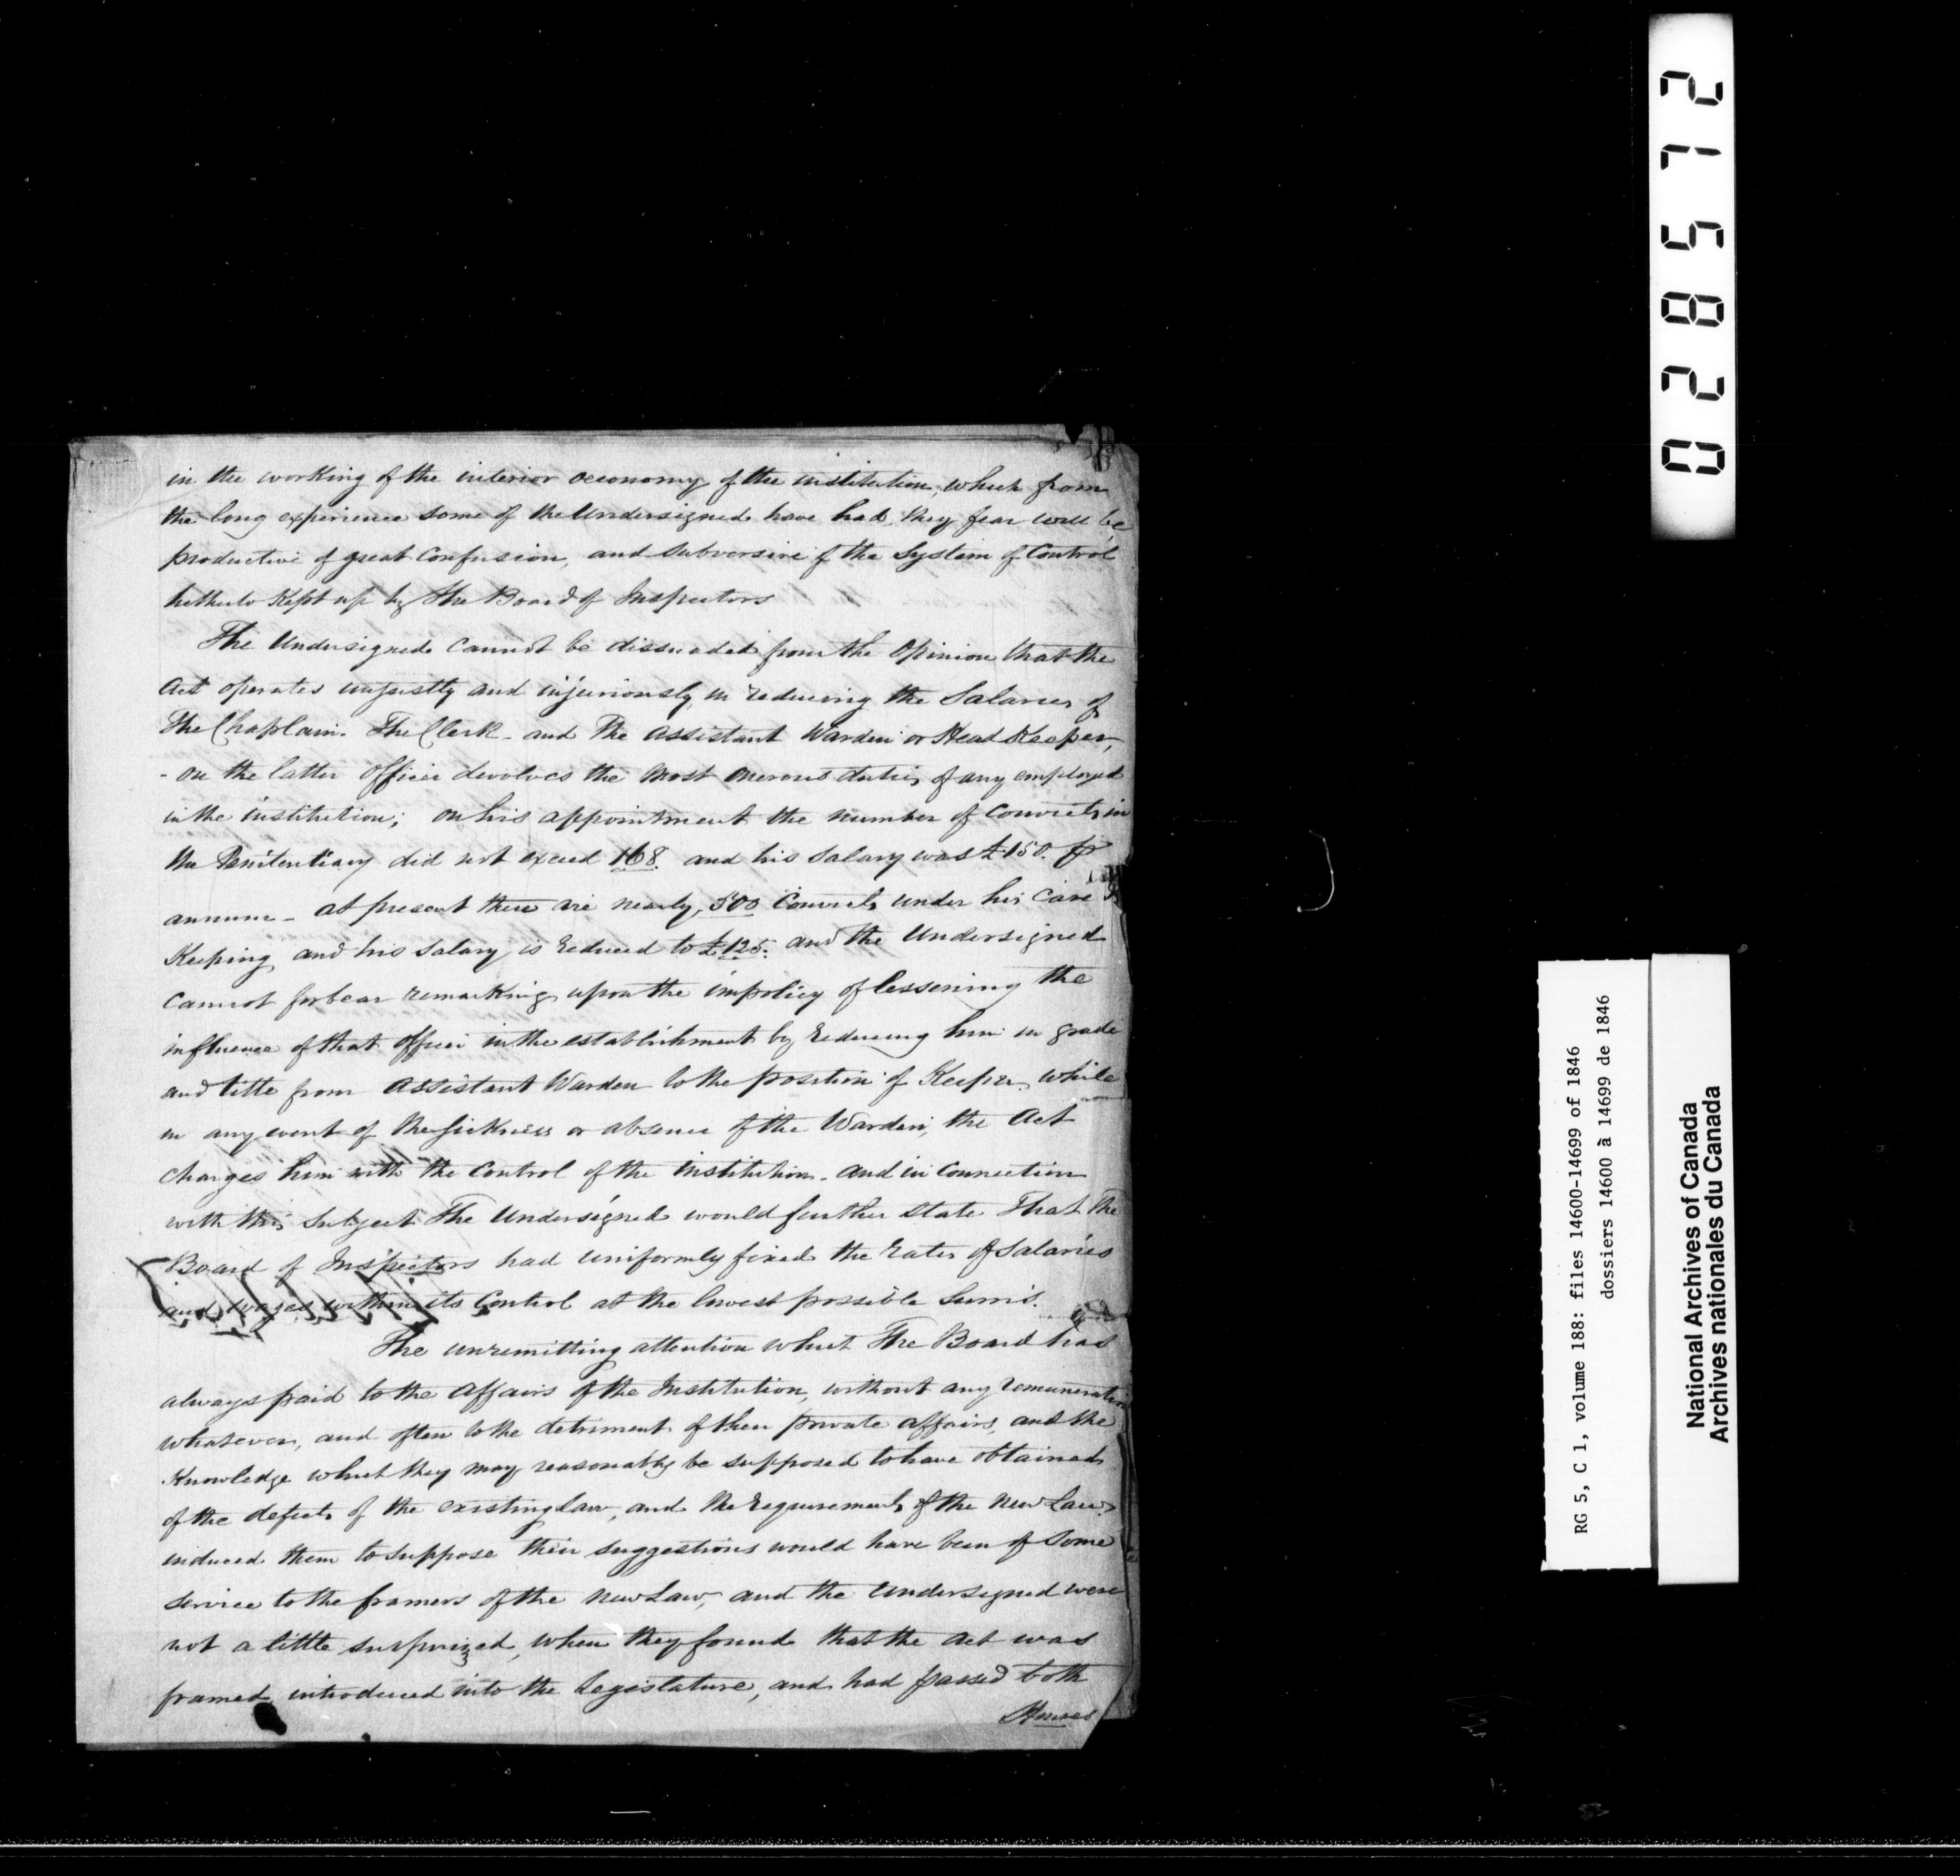 in the working of the interior oeconomy of the institution, which from
the long experience some of the Undersigned have had, they fear will be
productive of great confusion, and subversive of the System of Control
hitherto Kept up by The Board of Inspectors
The Undersigned cannot be dissuaded from the Opinion that the
Act operates unjustly and injuriously, in reducing the Salaries of
The Chaplain. The Clerk - and The Assistant Warden or Head Keeper,
- on the latter Officer devolves the most onerous duties of any employed
in the institution; on his appointment the number of Convicts in
the Penitentiary did not exceed 168. and his Salary was £150. pr
annum - at present there are nearly, 500 Convicts under his Care &
Keeping and his Salary is reduced to £125. and the Undersigned
cannot forbear remarking upon the impolicy of lessening the
influence of that officer in the establishment by reducing him in grade
and title from Assistant Warden to the position of Keeper, while
in any event of the sickness or absence of the Warden, the Act
charges him with the control of the institution - and in connection
with this Subject The Undersigned would further state That The
Board of Inspectors had uniformly fixed the rates of Salaries
and wages within its Control at the lowest possible Sums.
The unremitting attention which The Board had
always paid to the affairs of the Institution, without any remuneration
whatever, and often to the detriment of their private affairs, and the
Knowledge which they may reasonably be supposed to have obtained
of the defects of the existing law, and the requirements of the new Law,
induced them to suppose their suggestions would have been of some
service to the framers of the new Law, and the Undersigned were
not a little surprized, when they found that the Act was
framed, introduced into the Legislature, and had passed both
Houses
028572
RG 5, C 1, volume 188: files 14600-14699 of 1846
dossiers 14600 à 14699 de 1846
National Archives of Canada
Archives nationales du Canada